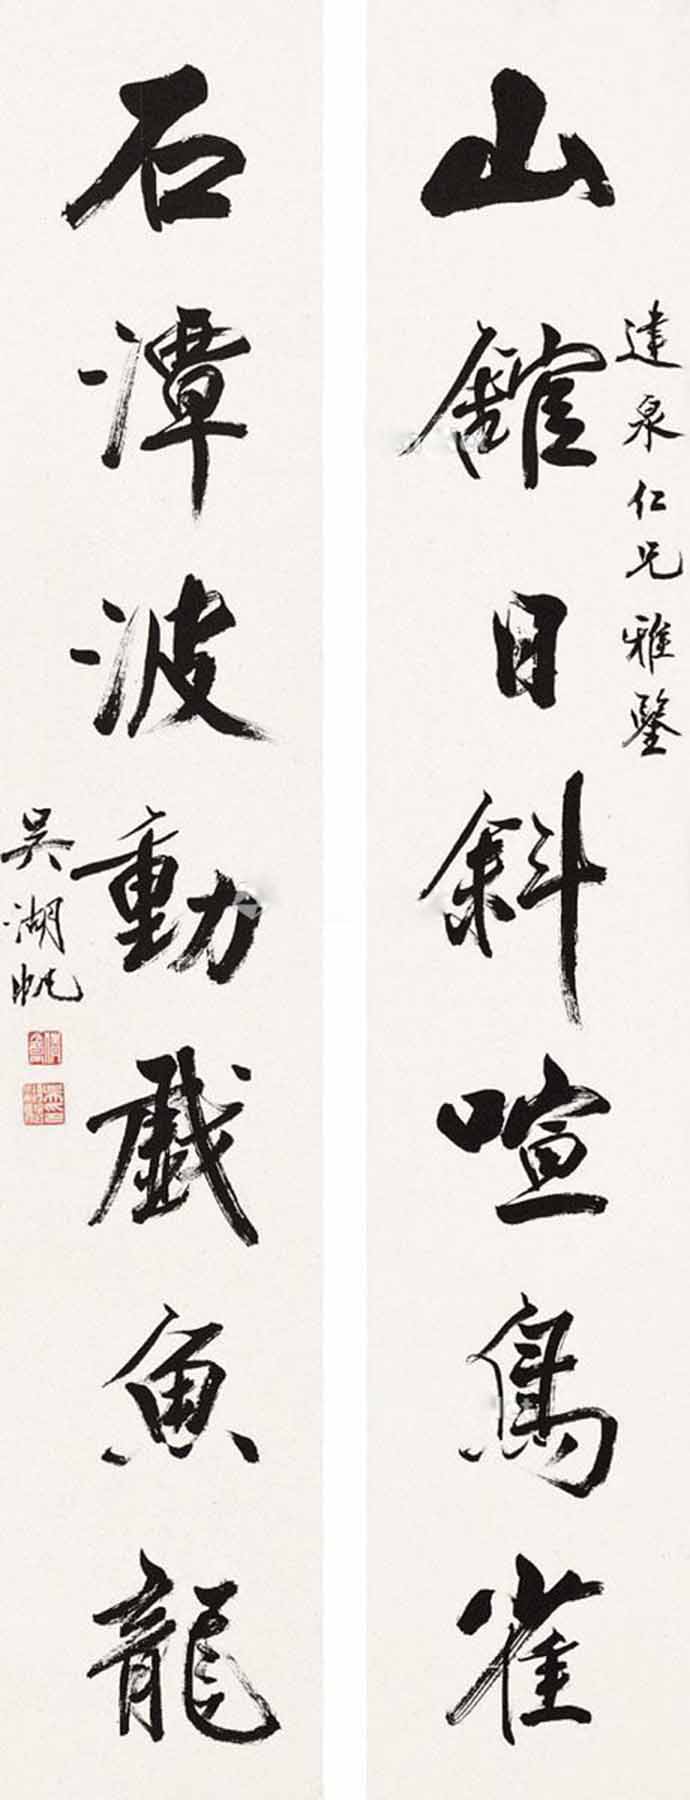 達泉仁兄雅鑒
山館日斜喧鳥雀
石潭波動戲魚龍
吳湖帆